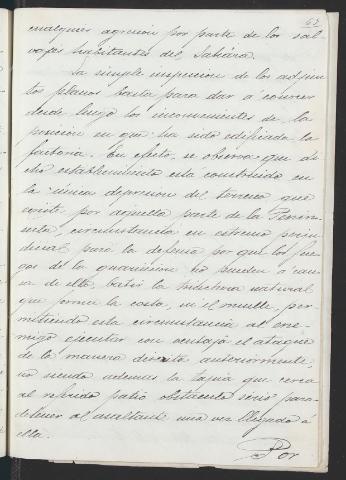 62
cualquier agresion por parte de los sal-
vajes habitantes del Sahára.
La simple inspeccion de los adjun-
tos planos basta para dar á conocer
desde luego los inconvenientes de la
posicion en que ha sido edificada la
factoria. En efecto, se observa que di-
cho establecimiento esta construido en
la única depresion del terreno que
existe por aquella parte de la Penin-
sula, circunstancia en estremo perju-
dicial para la defensa por que los fue-
gos de la guarnicion no pueden á cau-
sa de ella, batir la trinchera natural
que forma la costa, ni el muelle, per-
mitiendo esta circunstancia al ene-
migo ejecutar con ventaja el ataque
de la manera dicha anteriormente,
no siendo ademas la tapia que cerca
al referido patio obstáculo sério para
detener al asaltante una vez llegado á
ella.
Por